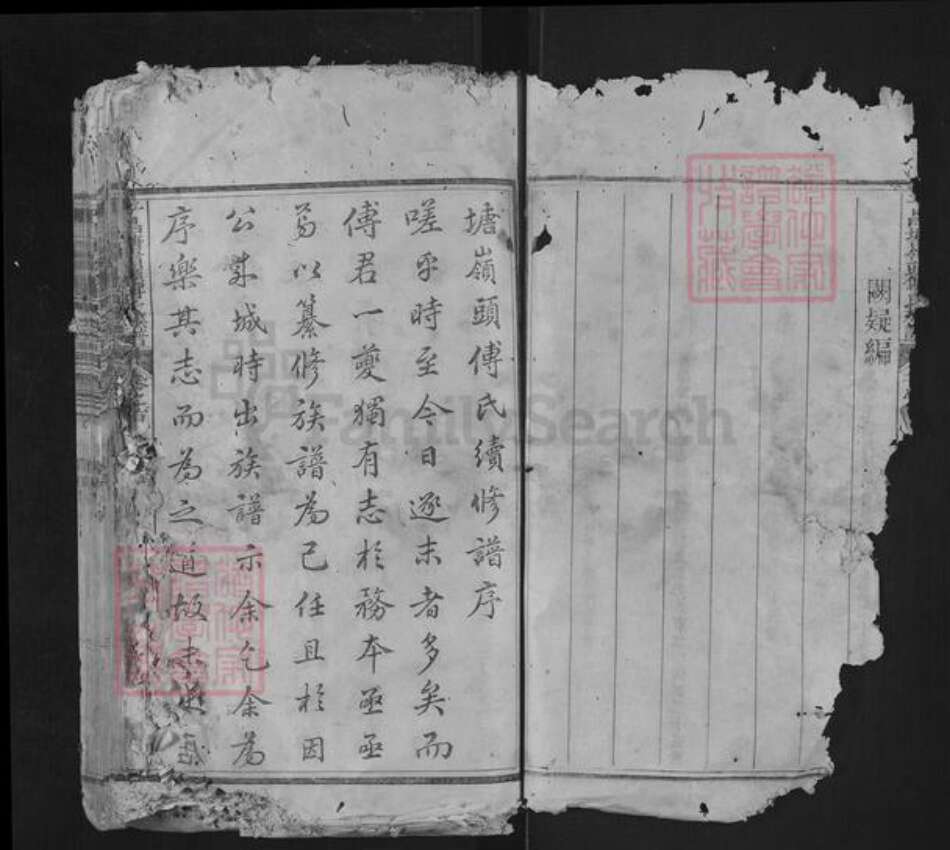 闕疑編
塘嶺頭傅氏續修譜序
嗟乎時至今日逐末者多矣而
傅君一夔獨有志於務本亟亟
焉以纂修族譜為己任且於因
公來城時出族譜示余乞余為
序樂其志而為之道故未
FamilySearch